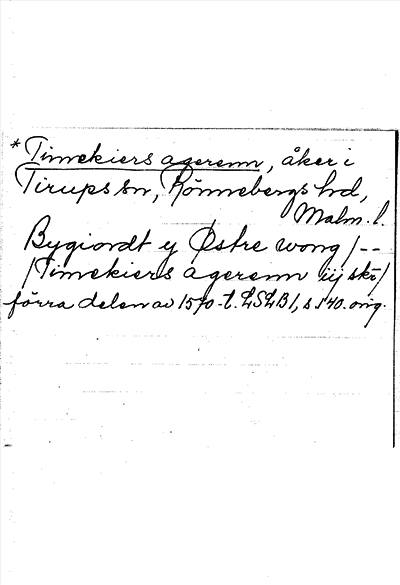 *Timekiers agerenn, åker i
Tirups sn, Rönnebergs hd,
Malm. l.
Bygiordt y Østre wong / --
/ Timekiers agerenn iij skr /
förra delen av 1570-t. LSLB1, s 540. orig.